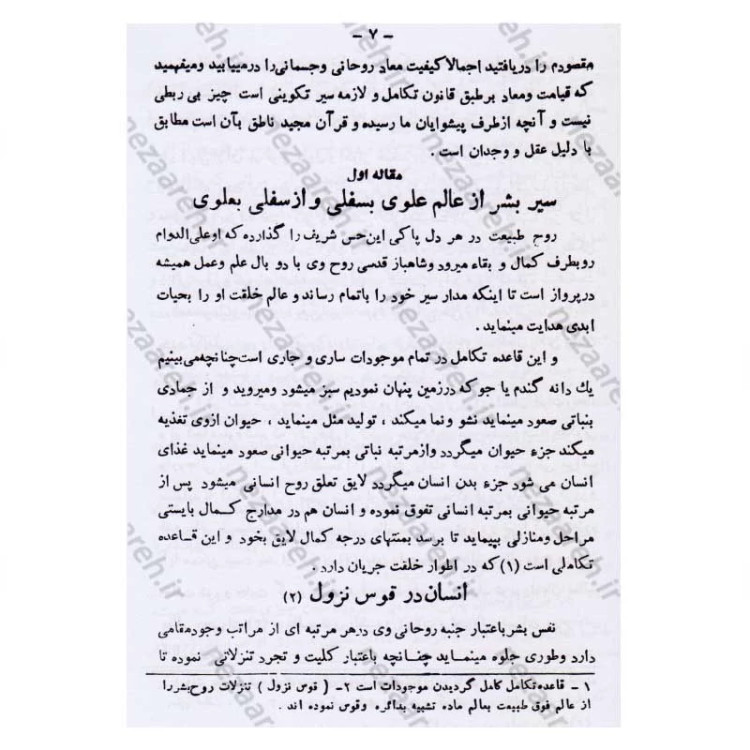 - ۷ -
مقصودم را دریافتید اجمالا کیفیت معاد روحانی وجسمانی را درمییابید ومیفهمید
که قیامت ومعاد برطبق قانون تکامل و لازمه سیر تکوینی است چیز بی ربطی
نیست و آنچه ازطرف پیشوایان ما رسیده و قرآن مجید ناطق بآن است مطابق
با دلیل عقل و وجدان است .
مقاله اول
سیر بشر از عالم علوی بسفلی و از سفلی بعلوی
روح طبیعت در هر دل پاکی این حس شریف را گذارده که او علی الدوام
روبطرف کمال و بقاء میرود وشاهباز قدسی روح وی با دو بال علم وعمل همیشه
درپرواز است تا اینکه مدار سیر خود را باتمام رساند و عالم خلقت او را بحیات
ابدی هدایت مینماید .
و این قاعده تکامل در تمام موجودات ساری و جاری است چنانچه می بینیم
یك دانه گندم یا جو که درزمین پنهان نمودیم سبز میشود ومیروید و از جمادی
بنباتی صعود مینماید نشو ونما میکند ، تولید مثل مینماید ، حیوان ازوی تغذیه
میکند جزء حیوان میگردد وازمرتبه نباتی بمرتبه حیوانی صعود مینماید غذای
انسان می شود جزء بدن انسان میگردد لایق تعلق روح انسانی میشود پس از
مرتبه حیوانی بمرتبه انسانی تفوق نموده و انسان هم در مدارج کمال بایستی
مراحل ومنازلی بپیماید تا برسد بمنتهای درجه کمال لایق بخود و این قاعده
تکاملی است (۱) که در اطوار خلقت جریان دارد .
انسان در قوس نزول (۲)
نفس بشر باعتبار جنبه روحانی وی درهر مرتبه ای از مراتب وجود مقامی
دارد وطوری جلوه مینماید چنانچه باعتبار کلیت و تجرد تنزلاتی نموده تا
۱ - قاعده تکامل کامل گردیدن موجودات است ۲- ( قوس نزول ) تنزلات روح بشر را
از عالم فوق طبیعت بعالم ماده تشبیه بدائره وقوس نموده اند .
nezaareh.ir